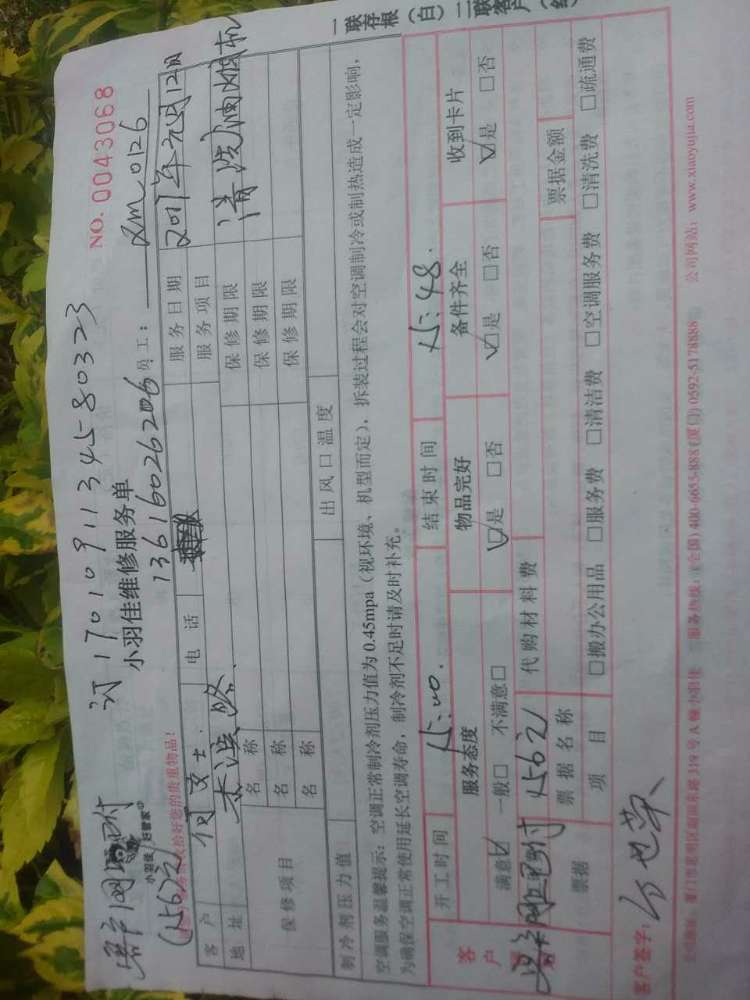 一联存根（白）二联客户（红
NO. 0043068
订 17010911345-80323
小羽佳维修服务单
13616026206 员工： 2m0126
小羽佳 好管家
请保管好您的贵重物品！
(1562)
客户 何女士. 电话 服务日期 2017年元月12日
地址 服务项目 清洗油烟机
保修项目 名称 保修期限
名称 保修期限
名称 保修期限
制冷剂压力值 出风口温度
空调服务温馨提示：空调正常制冷剂压力值为0.45mpa（视环境、机型而定），拆装过程会对空调制冷或制热造成一定影响，
为确保空调正常使用延长空调寿命，制冷剂不足时请及时补充。
开工时间 15:00 结束时间 15:48.
客户 服务态度 物品完好 备件齐全 收到卡片
满意☑ 一般□ 不满意□ ☑是 □否 ☑是 □否 ☑是 □否
1562) 代购材料费
票据 票据名称 票据金额
项目 □搬办公用品 □服务费 □清洁费 □空调服务费 □清洗费 □疏通费
客户签字：
服务热线：(全国) 400-6655-888 (厦门) 0592-5178888 公司网站：www.xiaoyujia.com